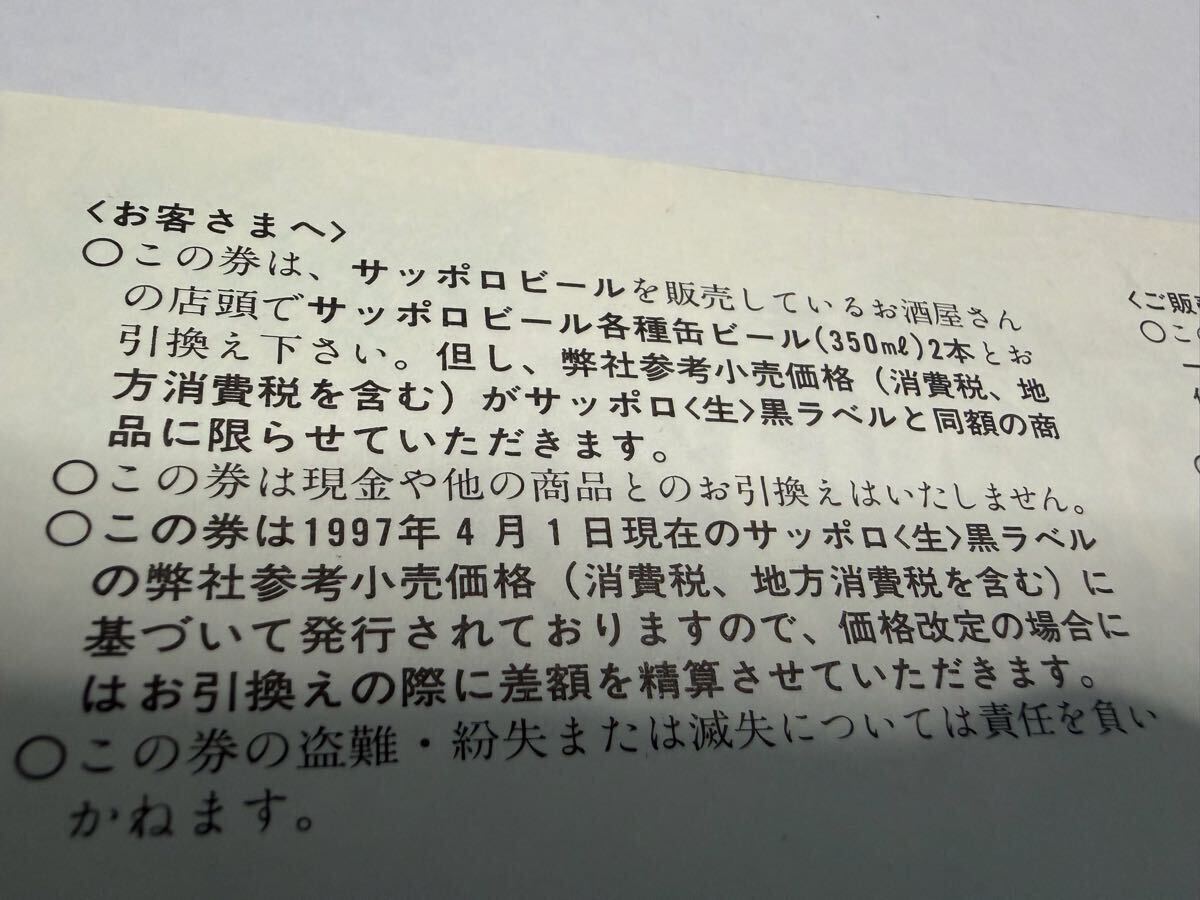 〈お客さまへ〉
○この券は、サッポロビールを販売しているお酒屋さん
の店頭でサッポロビール各種缶ビール(350㎖)2本とお
引換え下さい。但し、弊社参考小売価格（消費税、地
方消費税を含む）がサッポロ〈生〉黒ラベルと同額の商
品に限らせていただきます。
○この券は現金や他の商品とのお引換えはいたしません。
○この券は1997年4月1日現在のサッポロ〈生〉黒ラベル
の弊社参考小売価格（消費税、地方消費税を含む）に
基づいて発行されておりますので、価格改定の場合に
はお引換えの際に差額を精算させていただきます。
○この券の盗難・紛失または滅失については責任を負い
かねます。
〈ご販
○こ